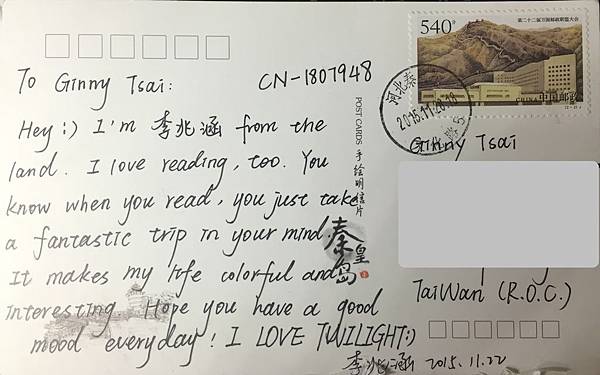 To Ginny Tsai:
CN-1807948
Hey:) I'm 李兆涵 from the
land. I love reading, too. You
know when you read, you just take
a fantastic trip in your mind.
It makes my life colorful and
interesting. Hope you have a good
mood everyday! I LOVE TWILIGHT:)
李兆涵 2015.11.22
POST CARDS 手绘明信片
秦皇岛
540分
第二十二届万国邮政联盟大会
CHINA 中国邮政
河北秦
2015.11.26.18
Ginny Tsai
TaiWan (R.O.C.)